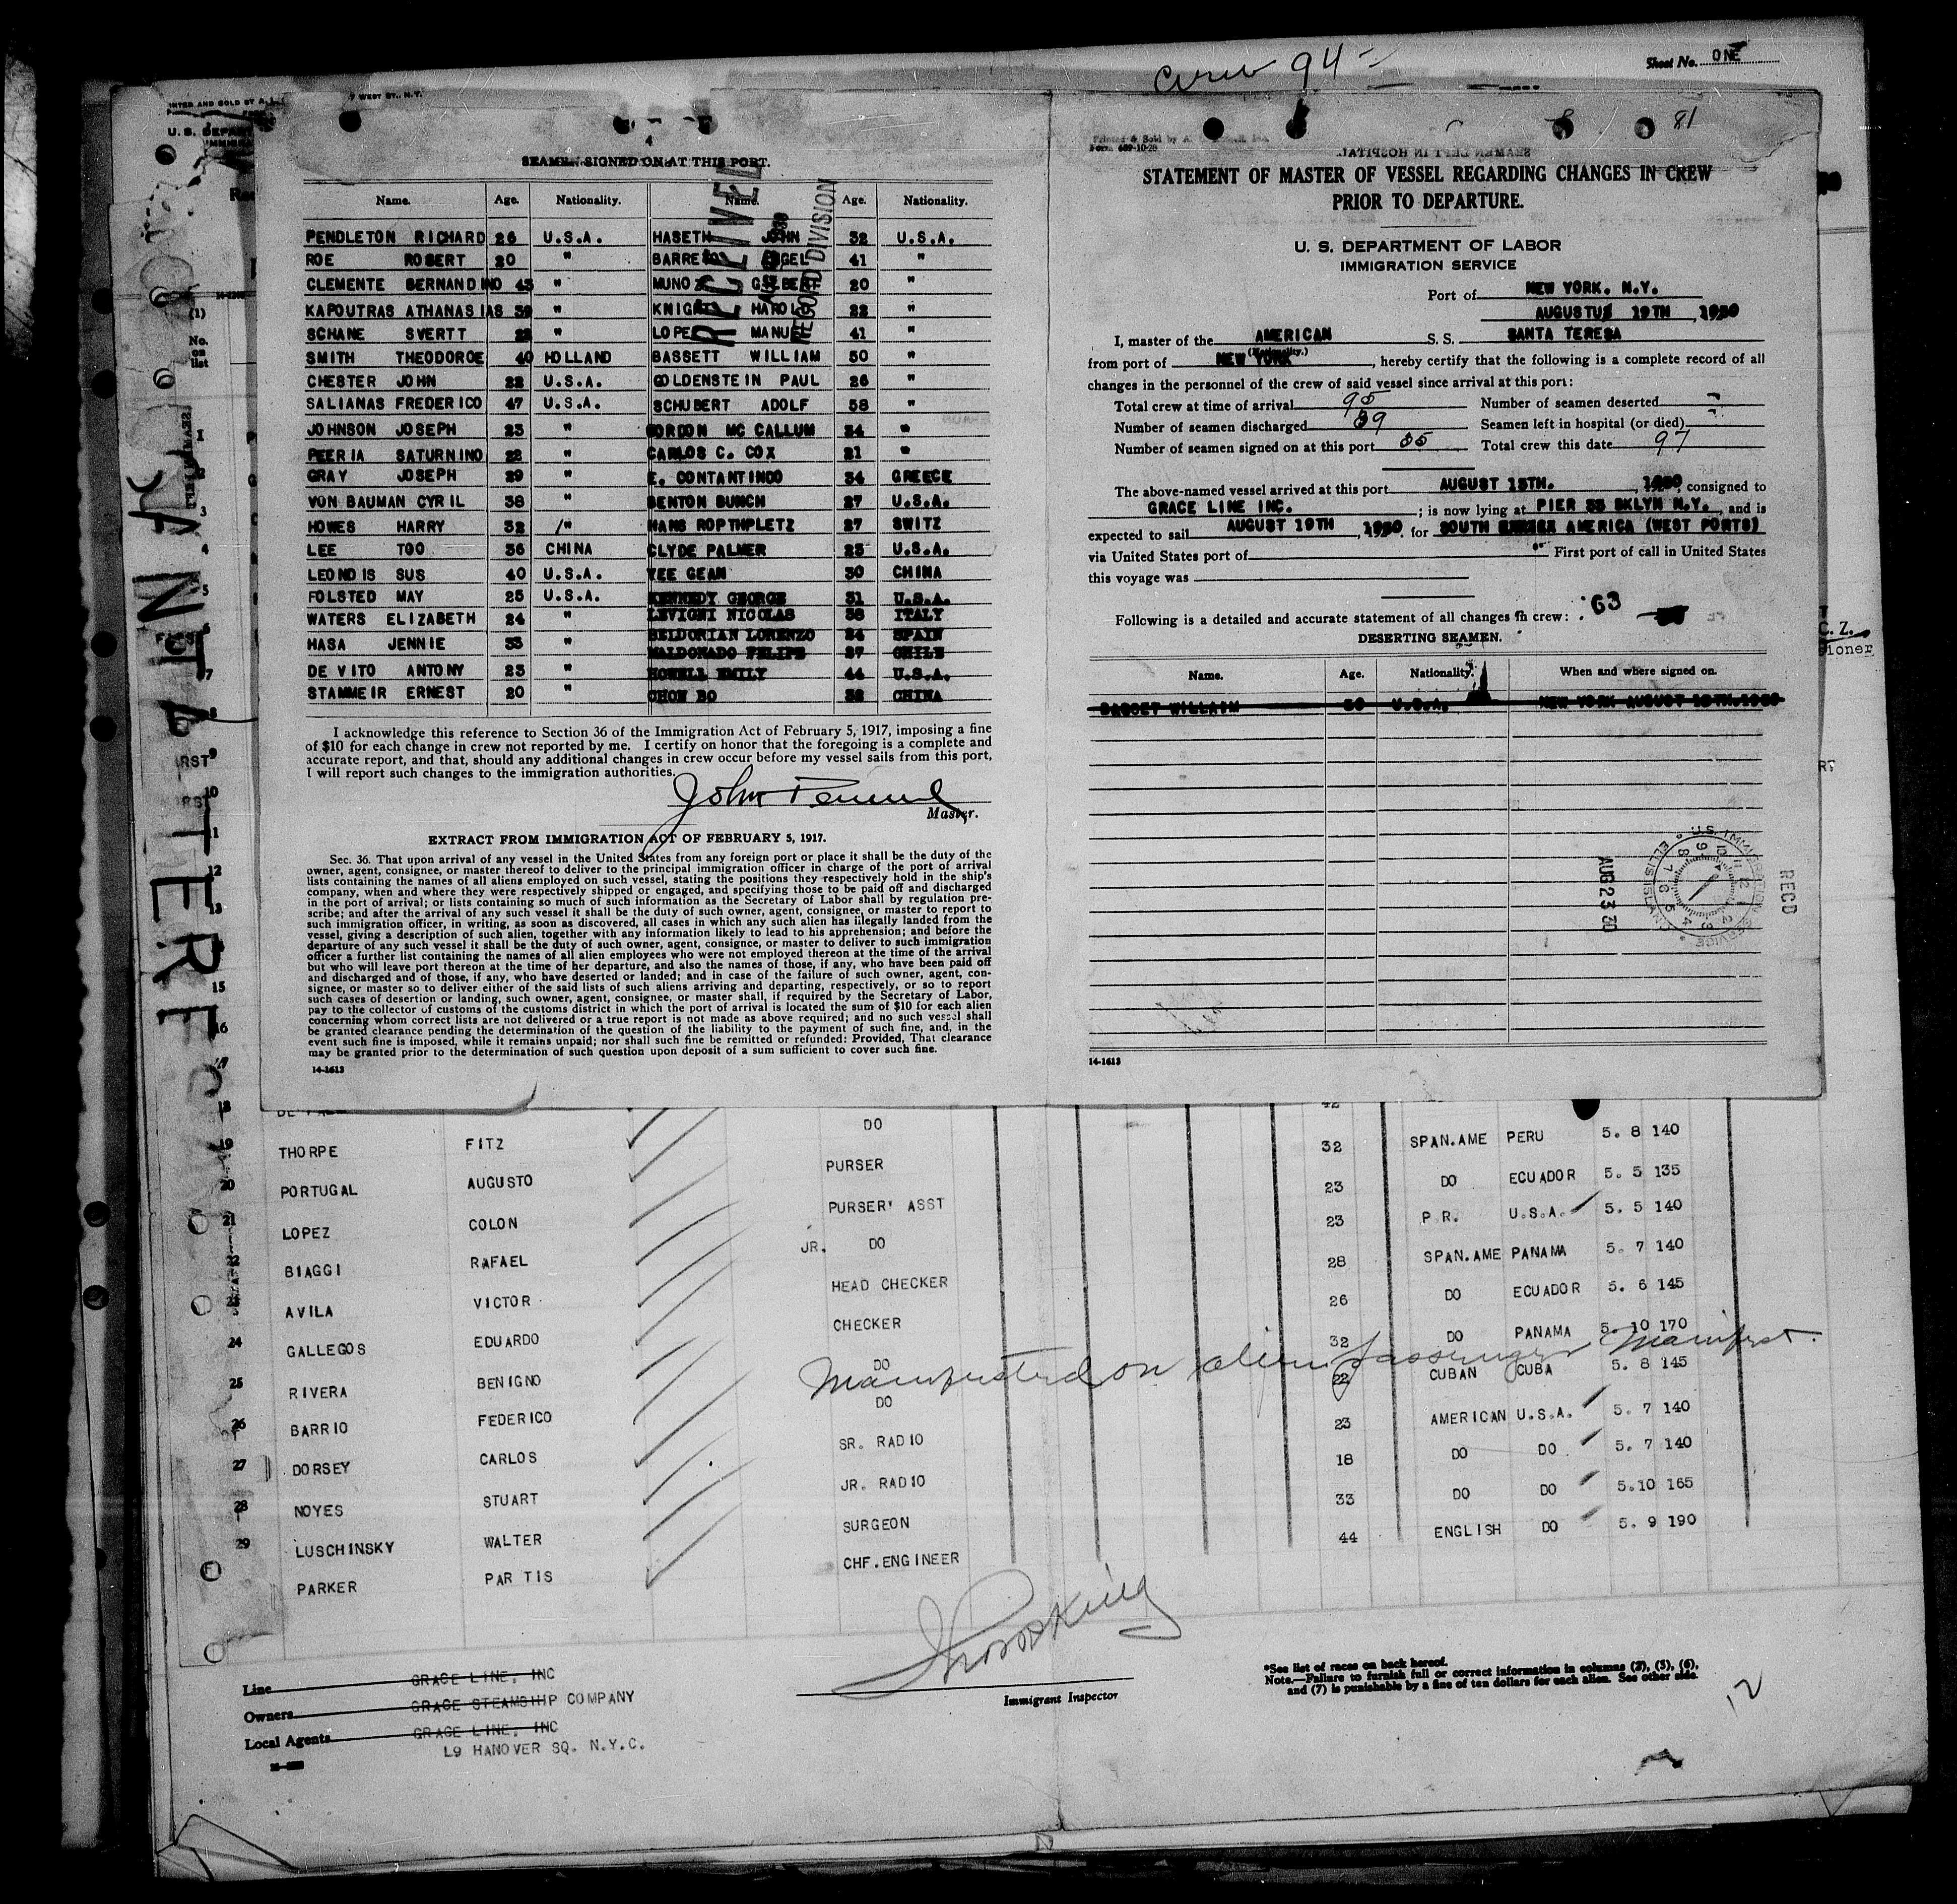 Crew 94
Sheet No. ONE
81
INTED AND SOLD BY A.
WEST ST., N.Y.
U. S. DEPAR
SANTA TERESA
4
SEAMEN SIGNED ON AT THIS PORT.
Name. Age. Nationality. Name. Age. Nationality.
RECEIVED
RECORD DIVISION
PENDLETON RICHARD 26 U.S.A. HASETH JOHN 32 U.S.A.
ROE ROBERT 20 " 41 "
CLEMENTE BERNANDINO 43 " MUNOZ 20 "
KAPOUTRAS ATHANASIAS 39 " KNIGHT HAROL 22 "
SCHANE SVERTT 22 " LOPE MANU 41 "
SMITH THEODOROE 40 HOLLAND BASSETT WILLIAM 50 "
CHESTER JOHN 22 U.S.A. GOLDENSTEIN PAUL 26 "
SALIANAS FREDERICO 47 U.S.A. SCHUBERT ADOLF 58 "
JOHNSON JOSEPH 23 " GORDON MC CALLUM 34 "
PEERIA SATURNINO 22 " CARLOS C. COX 21 "
GRAY JOSEPH 29 " E. CONTANTINOO 34 GREECE
VON BAUMAN CYRIL 38 " BENTON BUNCH 27 U.S.A.
HOWES HARRY 32 /" HANS ROPTHPLETZ 27 SWITZ
LEE TOO 36 CHINA CLYDE PALMER 23 U.S.A.
LEONDIS SUS 40 U.S.A. YEE GEAN 30 CHINA
FOLSTED MAY 25 U.S.A. KENNEDY GEORGE 31 U.S.A.
WATERS ELIZABETH 24 " LEVIGNI NICOLAS 38 ITALY
BELDORIAN LORENZO 24 SPAIN
HASA JENNIE 33 " MALDONADO FELIPE 27 CHILE
DE VITO ANTONY 23 " HOWELL EMILY 44 U.S.A.
STAMMEIR ERNEST 20 " CHOW BO 32 CHINA
I acknowledge this reference to Section 36 of the Immigration Act of February 5, 1917, imposing a fine
of $10 for each change in crew not reported by me. I certify on honor that the foregoing is a complete and
accurate report, and that, should any additional changes in crew occur before my vessel sails from this port,
I will report such changes to the immigration authorities.
John
Master.
EXTRACT FROM IMMIGRATION ACT OF FEBRUARY 5, 1917.
Sec. 36. That upon arrival of any vessel in the United States from any foreign port or place it shall be the duty of the
owner, agent, consignee, or master thereof to deliver to the principal immigration officer in charge of the port of arrival
lists containing the names of all aliens employed on such vessel, stating the positions they respectively hold in the ship's
company, when and where they were respectively shipped or engaged, and specifying those to be paid off and discharged
in the port of arrival; or lists containing so much of such information as the Secretary of Labor shall by regulation pre-
scribe; and after the arrival of any such vessel it shall be the duty of such owner, agent, consignee, or master to report to
such immigration officer, in writing, as soon as discovered, all cases in which any such alien has illegally landed from the
vessel, giving a description of such alien, together with any information likely to lead to his apprehension; and before the
departure of any such vessel it shall be the duty of such owner, agent, consignee, or master to deliver to such immigration
officer a further list containing the names of all alien employees who were not employed thereon at the time of the arrival
but who will leave port thereon at the time of her departure, and also the names of those, if any, who have been paid off
and discharged and of those, if any, who have deserted or landed; and in case of the failure of such owner, agent, con-
signee, or master so to deliver either of the said lists of such aliens arriving and departing, respectively, or so to report
such cases of desertion or landing, such owner, agent, consignee, or master shall, if required by the Secretary of Labor,
pay to the collector of customs of the customs district in which the port of arrival is located the sum of $10 for each alien
concerning whom correct lists are not delivered or a true report is not made as above required; and no such vessel shall
be granted clearance pending the determination of the question of the liability to the payment of such fine, and, in the
event such fine is imposed, while it remains unpaid; nor shall such fine be remitted or refunded: Provided, That clearance
may be granted prior to the determination of such question upon deposit of a sum sufficient to cover such fine.
14-1613
Form 689-10-28
STATEMENT OF MASTER OF VESSEL REGARDING CHANGES IN CREW
PRIOR TO DEPARTURE.
U. S. DEPARTMENT OF LABOR
IMMIGRATION SERVICE
Port of NEW YORK. N.Y.
AUGUSTUS 19TH , 1930
I, master of the AMERICAN S. S. SANTA TERESA
(Nationality.)
from port of NEW YORK , hereby certify that the following is a complete record of all
changes in the personnel of the crew of said vessel since arrival at this port:
Total crew at time of arrival 95 Number of seamen deserted -
Number of seamen discharged 39 Seamen left in hospital (or died) -
Number of seamen signed on at this port 35 Total crew this date 97
The above-named vessel arrived at this port AUGUST 13TH. , 1930, consigned to
GRACE LINE INC. ; is now lying at PIER 33 BKLYN N.Y. , and is
expected to sail AUGUST 19TH , 1930. for SOUTH AMERICA (WEST PORTS)
via United States port of First port of call in United States
this voyage was
Following is a detailed and accurate statement of all changes in crew: 63
DESERTING SEAMEN.
Name. Age. Nationality. When and where signed on.
BASSET WILLAIM 50 U.S.A. NEW YORK AUGUST 18TH.1930
U.S. IMMIGRATION SERVICE ELLIS ISLAND
AUG 23 30
RECD
14-1613
C. Z.
42
18
DO
19 THORPE FITZ 32 SPAN.AME PERU 5. 8 140
PURSER
20 PORTUGAL AUGUSTO 23 DO ECUADOR 5. 5 135
PURSER' ASST
21 LOPEZ COLON 23 P.R. U.S.A. 5. 5 140
JR. DO
22 BIAGGI RAFAEL 28 SPAN.AME PANAMA 5. 7 140
HEAD CHECKER
23 AVILA VICTOR 26 DO ECUADOR 5. 6 145
CHECKER
24 GALLEGOS EDUARDO 32 DO PANAMA 5. 10 170
Manifested on alien passenger Manifest.
DO
25 RIVERA BENIGNO 22 CUBAN CUBA 5. 8 145
DO
26 BARRIO FEDERICO 23 AMERICAN U.S.A. 5. 7 140
SR. RADIO
27 DORSEY CARLOS 18 DO DO 5. 7 140
JR. RADIO
28 NOYES STUART 33 DO DO 5.10 165
SURGEON
29 LUSCHINSKY WALTER 44 ENGLISH DO 5. 9 190
CHF.ENGINEER
PARKER PARTIS
Line GRACE LINE, INC
Owners GRACE STEAMSHIP COMPANY
Local Agents GRACE LINE, INC
L9 HANOVER SQ. N.Y.C.
Immigrant Inspector
*See list of races on back hereof.
Note.—Failure to furnish full or correct information in columns (2), (5), (6),
and (7) is punishable by a fine of ten dollars for each alien. See other side.
12